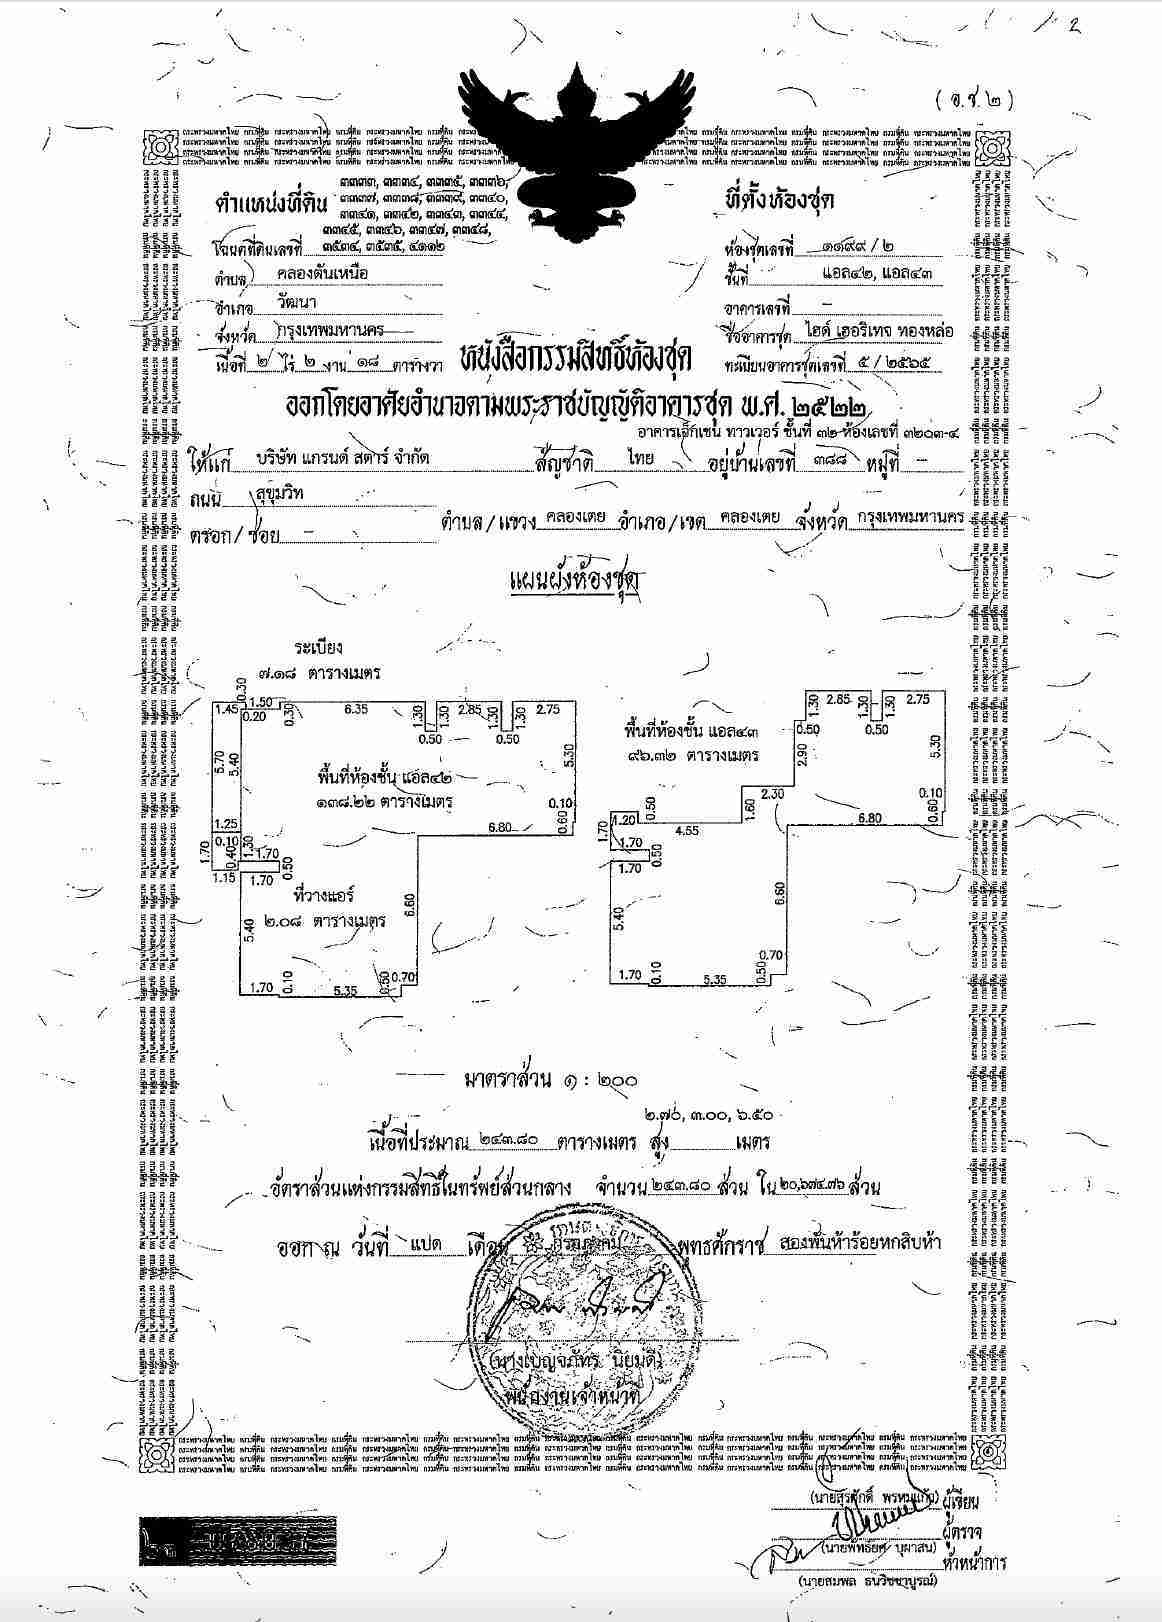 2
(อ.ช.๒)
ตำแหน่งที่ดิน
๓๓๓๓, ๓๓๓๔, ๓๓๓๕, ๓๓๓๖,
๓๓๓๗, ๓๓๓๘, ๓๓๓๙, ๓๓๔๐,
๓๓๔๑, ๓๓๔๒, ๓๓๔๓, ๓๓๔๔,
๓๓๔๕, ๓๓๔๖, ๓๓๔๗, ๓๓๔๘,
โฉนดที่ดินเลขที่ ๓๕๓๔, ๓๕๓๕, ๔๑๑๒
ตำบล คลองตันเหนือ
อำเภอ วัฒนา
จังหวัด กรุงเทพมหานคร
เนื้อที่ ๒ ไร่ ๒ งาน ๑๘ ตารางวา
ที่ตั้งห้องชุด
ห้องชุดเลขที่ ๑๑๙๙ / ๒
ชั้นที่ แอล๔๒, แอล๔๓
อาคารเลขที่ –
ชื่ออาคารชุด ไฮด์ เฮอริเทจ ทองหล่อ
ทะเบียนอาคารชุดเลขที่ ๕ / ๒๕๖๕
หนังสือกรรมสิทธิ์ห้องชุด
ออกโดยอาศัยอำนาจตามพระราชบัญญัติอาคารชุด พ.ศ. ๒๕๒๒
อาคารเอ็กเชน ทาวเวอร์ ชั้นที่ ๓๒ ห้องเลขที่ ๓๒๐๓-๔
ให้แก่ บริษัท แกรนด์ สตาร์ จำกัด สัญชาติ ไทย อยู่บ้านเลขที่ ๓๘๘ หมู่ที่ –
ถนน สุขุมวิท
ตรอก/ซอย – ตำบล/แขวง คลองเตย อำเภอ/เขต คลองเตย จังหวัด กรุงเทพมหานคร
แผนผังห้องชุด
ระเบียง
๗.๑๘ ตารางเมตร
0.30
1.45 1.50 0.20 0.30 6.35 1.30 1.30 2.85 1.30 1.30 2.75
0.50 0.50
5.70 5.40 5.30
พื้นที่ห้องชั้น แอล๔๒
๑๓๘.๒๒ ตารางเมตร
0.10
1.25 6.80 0.60
1.70 0.10 0.40 1.30 1.70 0.50
1.15 1.70
ที่วางแอร์
๒.๐๘ ตารางเมตร
5.40 6.60
1.70 0.10 5.35 0.50 0.70
1.30 2.85 1.30 1.30 2.75
0.50 0.50
พื้นที่ห้องชั้น แอล๔๓
๙๖.๓๒ ตารางเมตร
2.90 5.30
2.30 0.10
1.20 0.50 4.55 1.60 6.80 0.60
1.70 1.70 0.50
1.70
5.40 6.60
1.70 0.10 5.35 0.50 0.70
มาตราส่วน ๑ : ๒๐๐
๒.๗๐, ๓.๐๐, ๖.๕๐
เนื้อที่ประมาณ ๒๔๓.๘๐ ตารางเมตร สูง เมตร
อัตราส่วนแห่งกรรมสิทธิ์ในทรัพย์ส่วนกลาง จำนวน ๒๔๓.๘๐ ส่วน ใน ๒๐,๖๗๔.๗๖ ส่วน
ออก ณ วันที่ แปด เดือน พุทธศักราช สองพันห้าร้อยหกสิบห้า
(นางเบญจภัทร นิยมดี)
พนักงานเจ้าหน้าที่
(นายสุรศักดิ์ พรหมแก้ว) ผู้เขียน
ผู้ตรวจ
หัวหน้าการ
(นายสมพล ธนวิชชาบูรณ์)